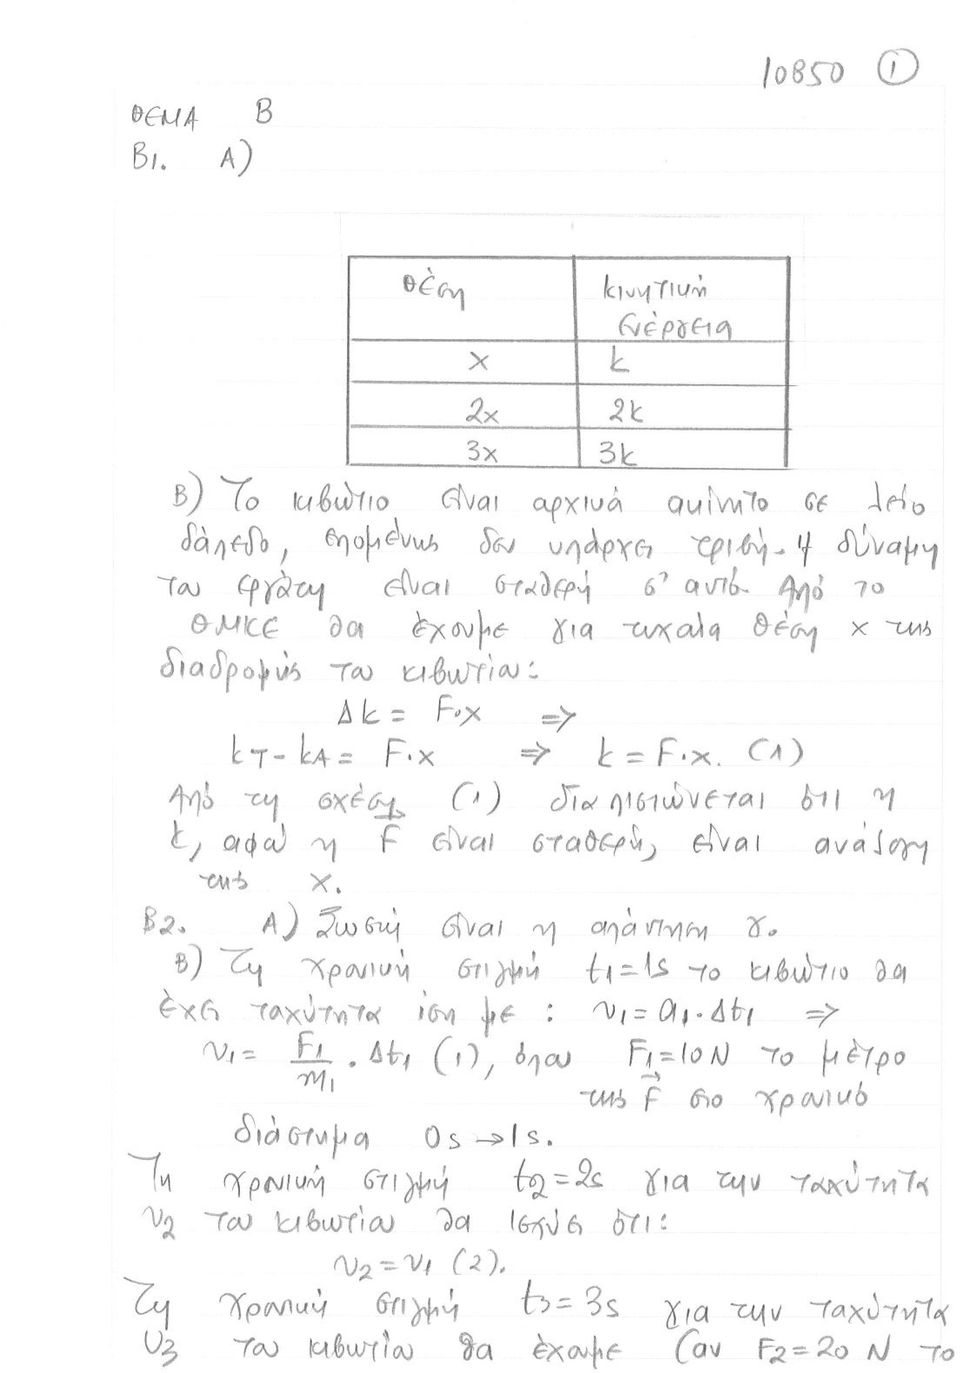 10850 ①
ΘΕΜΑ Β
Β1. Α)
θέση κινητική
ενέργεια
x k
2x 2k
3x 3k
Β) Το κιβώτιο είναι αρχικά ακίνητο σε λείο
δάπεδο, επομένως δεν υπάρχει τριβή. Η δύναμη
του εργάτη είναι σταθερή σ' αυτό. Από το
ΘΜΚΕ θα έχουμε για τυχαία θέση x της
διαδρομής του κιβωτίου:
Δk = F·x ⇒
kT - kA = F·x ⇒ k = F·x. (1)
Από τη σχέση (1) διαπιστώνεται ότι η
k, αφού η F είναι σταθερή, είναι ανάλογη
της x.
Β2. Α) Σωστή είναι η απάντηση γ.
Β) Τη χρονική στιγμή t1=1s το κιβώτιο θα
έχει ταχύτητα ίση με : v1 = a1·Δt1 ⇒
v1 = F1/m1 · Δt1 (1), όπου F1=10N το μέτρο
της F⃗ στο χρονικό
διάστημα 0s → 1s.
Τη χρονική στιγμή t2=2s για την ταχύτητα
v2 του κιβωτίου θα ισχύει ότι:
v2 = v1 (2).
Τη χρονική στιγμή t3 = 3s για την ταχύτητα
v3 του κιβωτίου θα έχουμε (αν F2=20 N το